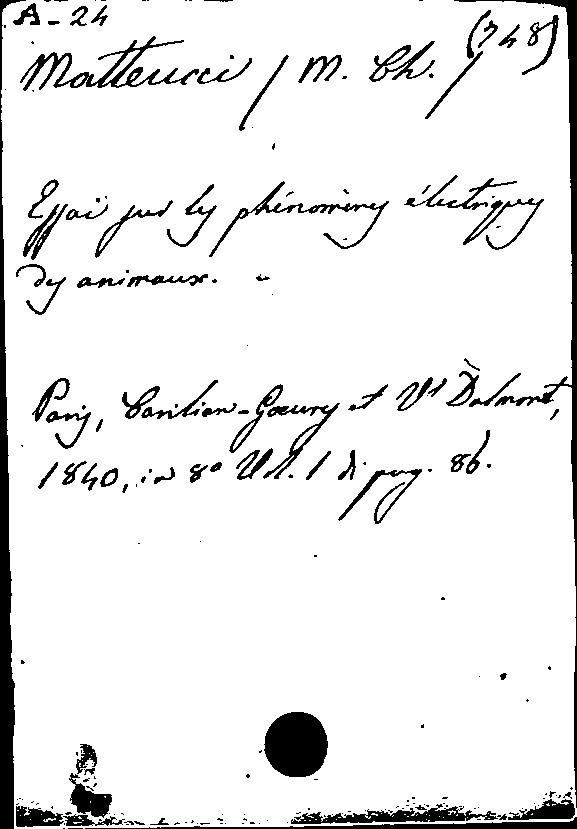 A-24
(748)
Matteucci / M. Ch. /
Essai sur les phénomènes électriques
des animaux. -
Paris, Carilian-Goeury et Vr Dalmont,
1840, in 8° Vol. 1 di pag. 86.